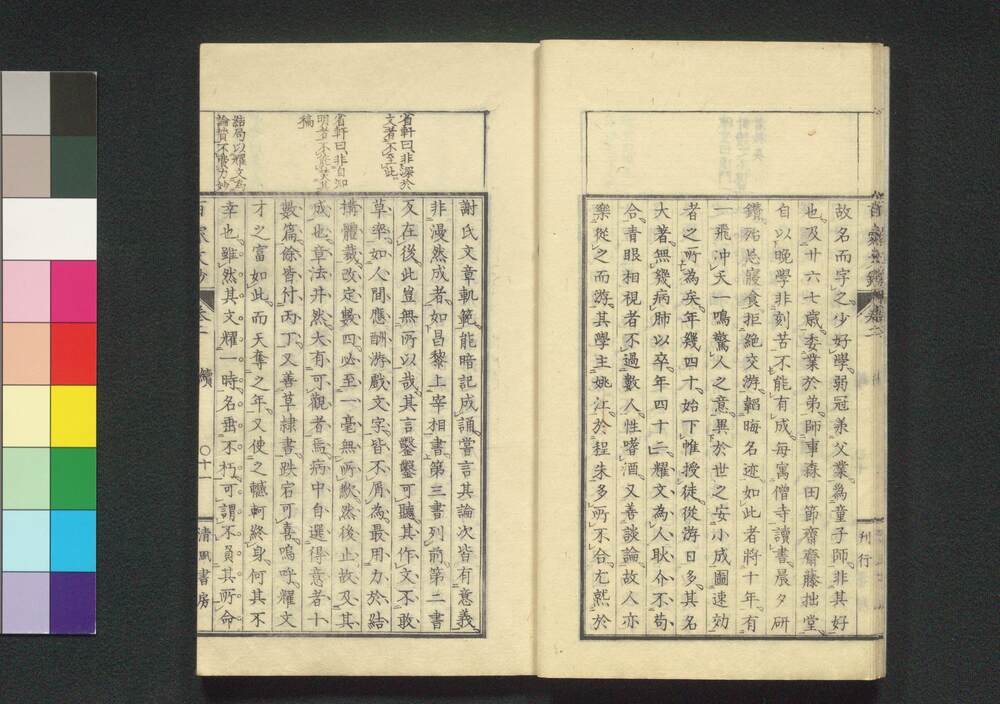 故名而字之少好學弱冠承父業為童子師非其好
也及廿六七歳委業於弟師事森田節齋齋藤拙堂
自以晚學非刻苦不能有成每寓僧寺讀書晨夕研
鑽殆忘寢食拒絕交游韜晦名迹如此者將十年有
一飛冲天一鳴驚人之意異於世之安小成圖速効
者之所為矣年幾四十始下帷授徒從游日多其名
大著無幾病肺以卒年四十二耀文為人耿介不苟
合青眼相視者不過數人性嗜酒又善談論故人亦
樂從之而游其學主姚江於程朱多所不合尤㷱於
刊行
省軒曰非深於
文者不至此
省軒曰非自知
明者不能焚其
稿
結局以耀文為
謝氏文章軌範能暗記成誦嘗言其論次皆有意義
非漫然成者如昌黎上宰相書第三書列前第二書
反在後此豈無所以哉其言鑿鑿可聽其作文不敢
草率如人間應酬游戲文字皆不屑為最用力於結
搆體裁改定數四必至一毫無所歉然後止故及其
成也章法井然大有可觀者焉病中自選得意者十
數篇餘皆付丙丁又善草隸書跌宕可喜嗚呼耀文
才之富如此而天奪之年又使之轗軻終身何其不
幸也雖然其文耀一時名垂不朽可謂不負其所命
〇十一
清風書房